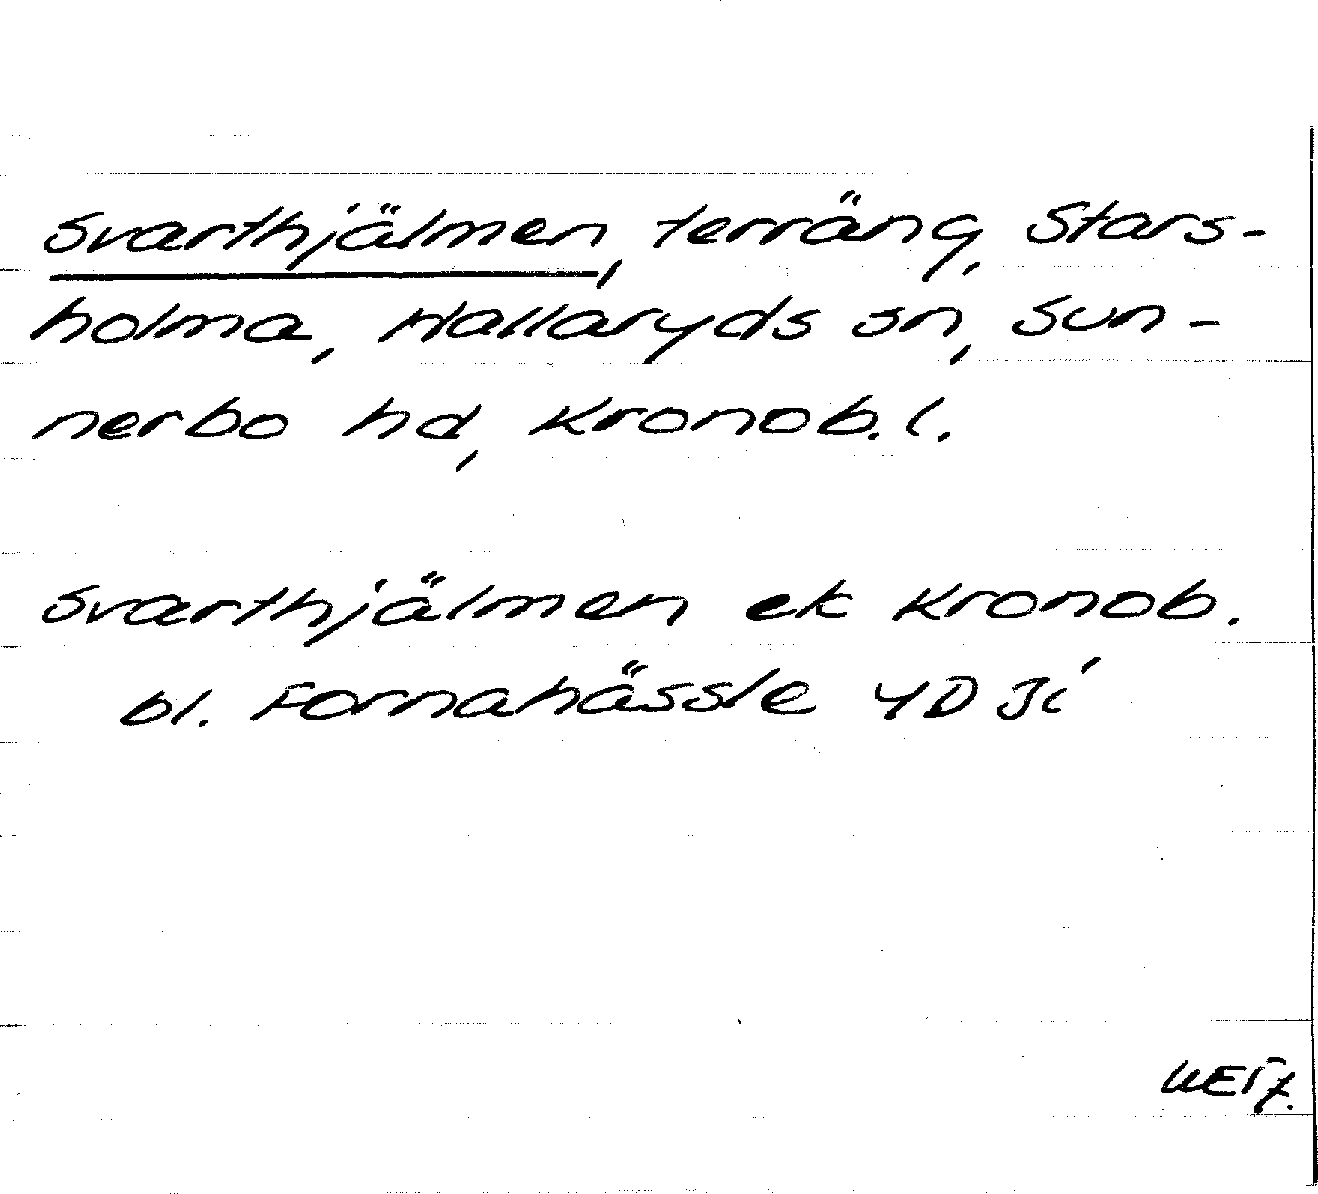 Svarthjälmen, terräng, Stars-
holma, Hallaryds sn, Sun-
nerbo hd, Kronob. l.
Svarthjälmen ek Kronob.
bl. Fornahässle 4D